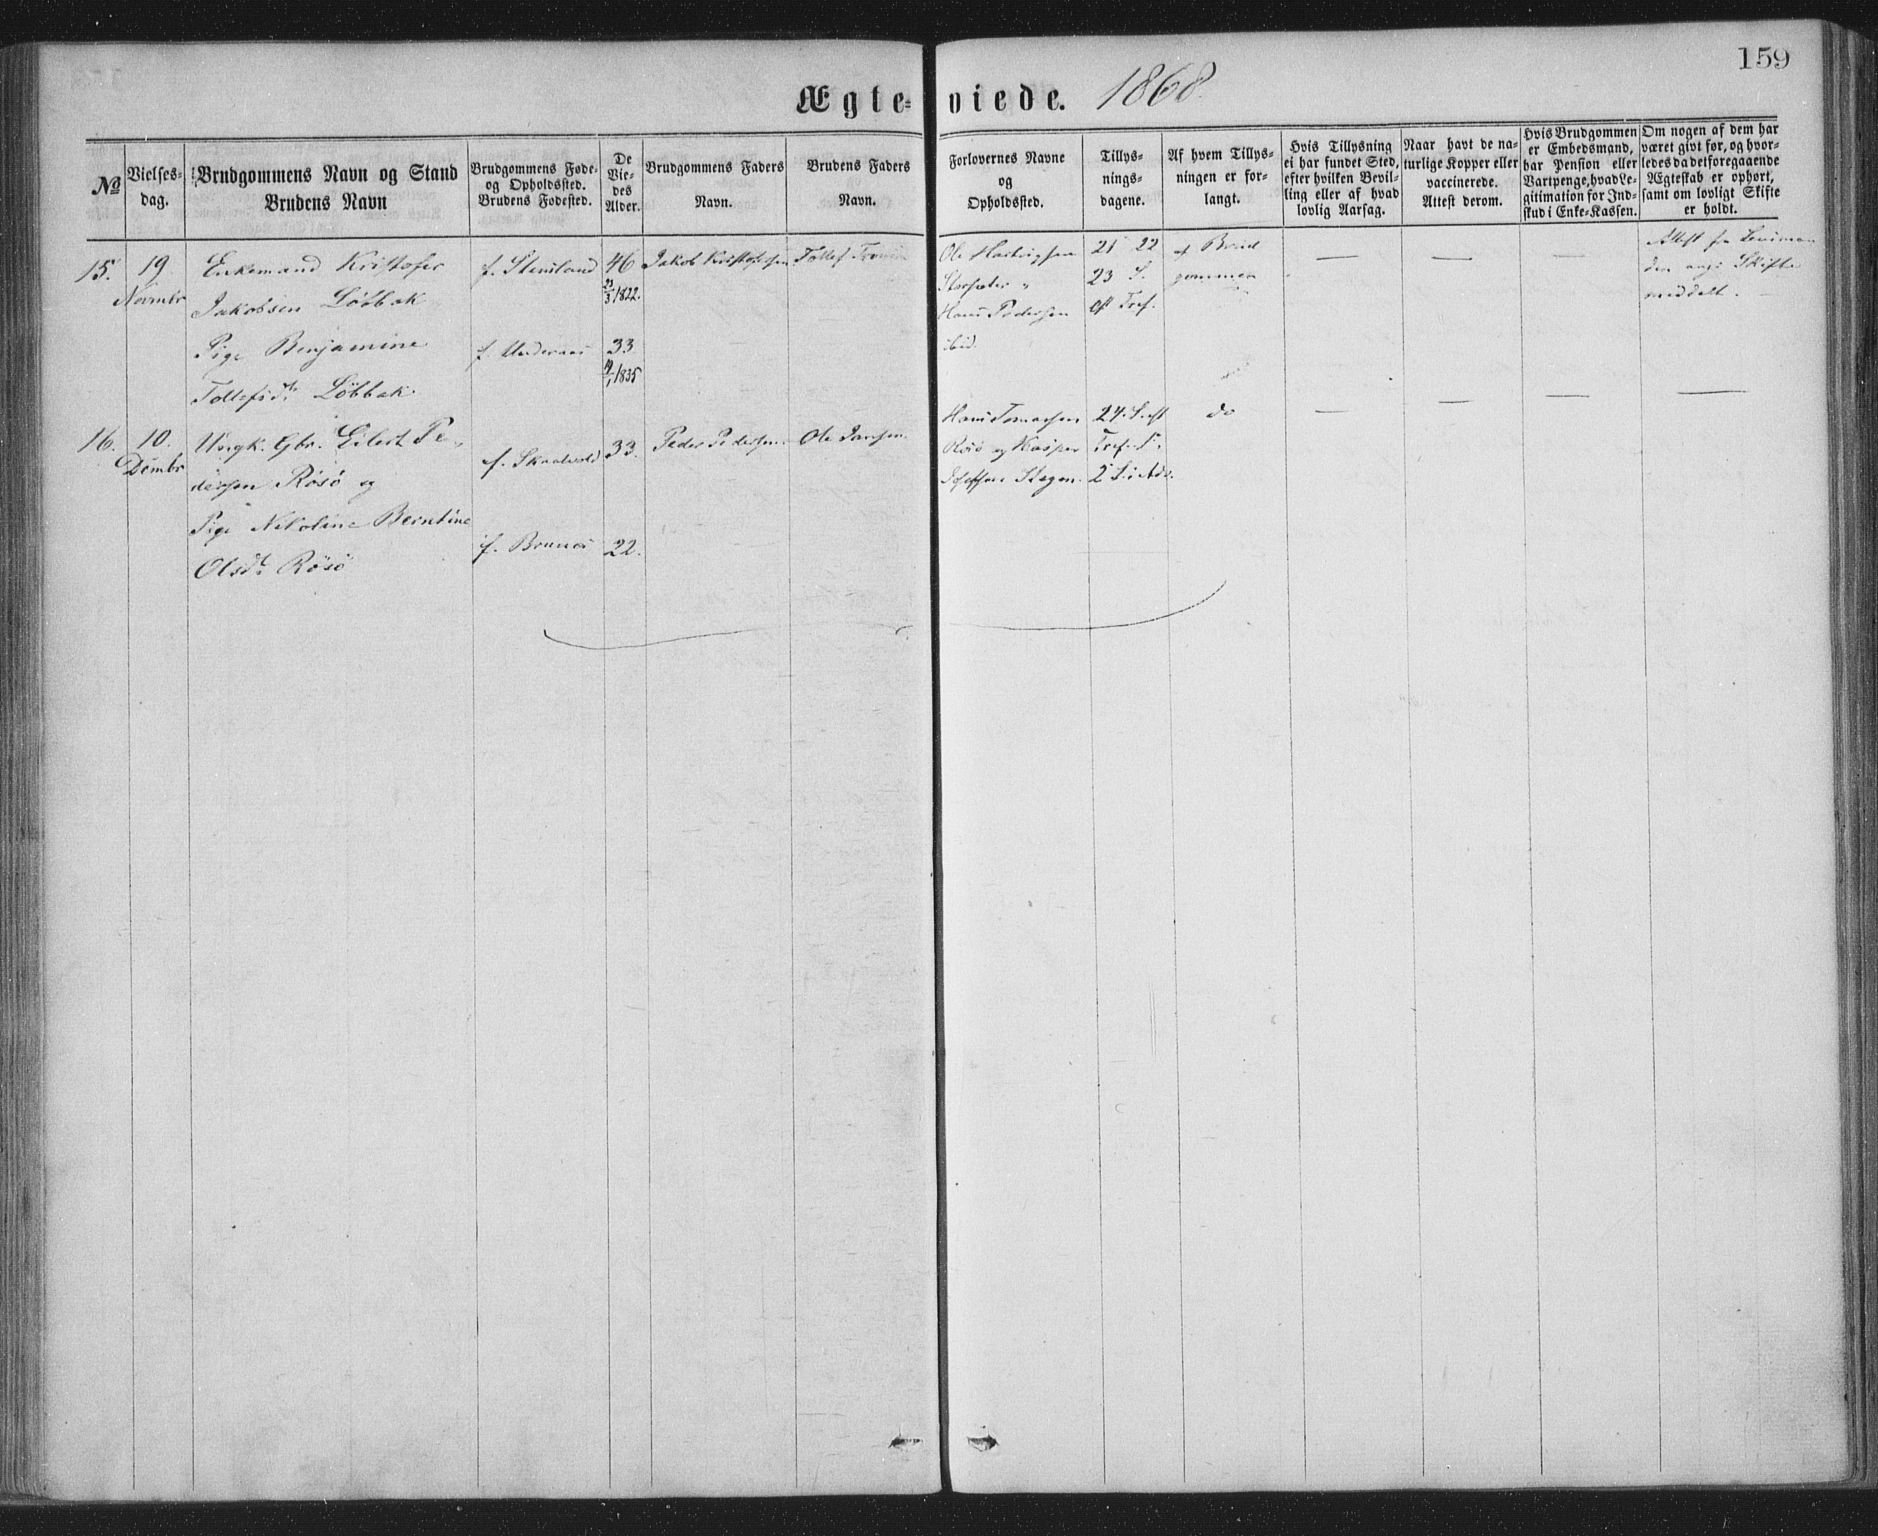 159
Ægte- viede. 1868
No
Vielses-
dag.
Brudgommens Navn og Stand
Brudens Navn
Brudgommens Føde-
og Opholdssted.
Brudens Fødested.
De
Vie-
des
Alder.
Brudgommens Faders
Navn.
Brudens Faders
Navn.
Forlovernes Navne
og
Opholdssted.
Tillys-
nings-
dagene.
Af hvem Tillys-
ningen er for-
langt.
Hvis Tillysning
ei har fundet Sted,
efter hvilken Bevil-
ling eller af hvad
lovlig Aarsag.
Naar havt de na-
turlige Kopper eller
vaccinerede.
Attest derom.
Hvis Brudgommen
er Embedsmand,
har Pension eller
Vartpenge, hvad Le-
gitimation for Ind-
skud i Enke-Kassen.
Om nogen af dem har
været givt før, og hvor-
ledes da det foregaaende
Ægteskab er ophørt,
samt om lovligt Skifte
er holdt.
15.
19
Novmbr
Enkemand Kristofer
Jakobsen Löbbak
Pige Benjamine
Tollefsdtr Löbbak.
f. Stensland
f. Undernæs
46
23/3 1822.
33
19/1 1835
Jakob Kristofersen
Tollef
Ole Hartvigsen
Storsæter
Hans Pedersen
ibid.
21 22
23 S.
eft Tref.
af Brud
gommen
— — —
Attest fra Lensman
den ang: Skifte
meddelt. —
16.
10.
Dcmbr
Ungk. Gbr. Eilert Pe-
dersen Rösö og
Pige Nikoline Berntine
Olsdtr Rösö
f. Skaalvold
f. Brunes
33.
22.
Peder Pedersen.
Ole Jansen.
Hans Tomassen
Rösö og Kasper
Skogen.
24. S. eft
Tref. &
2 S. i Adv.
do
— — — —